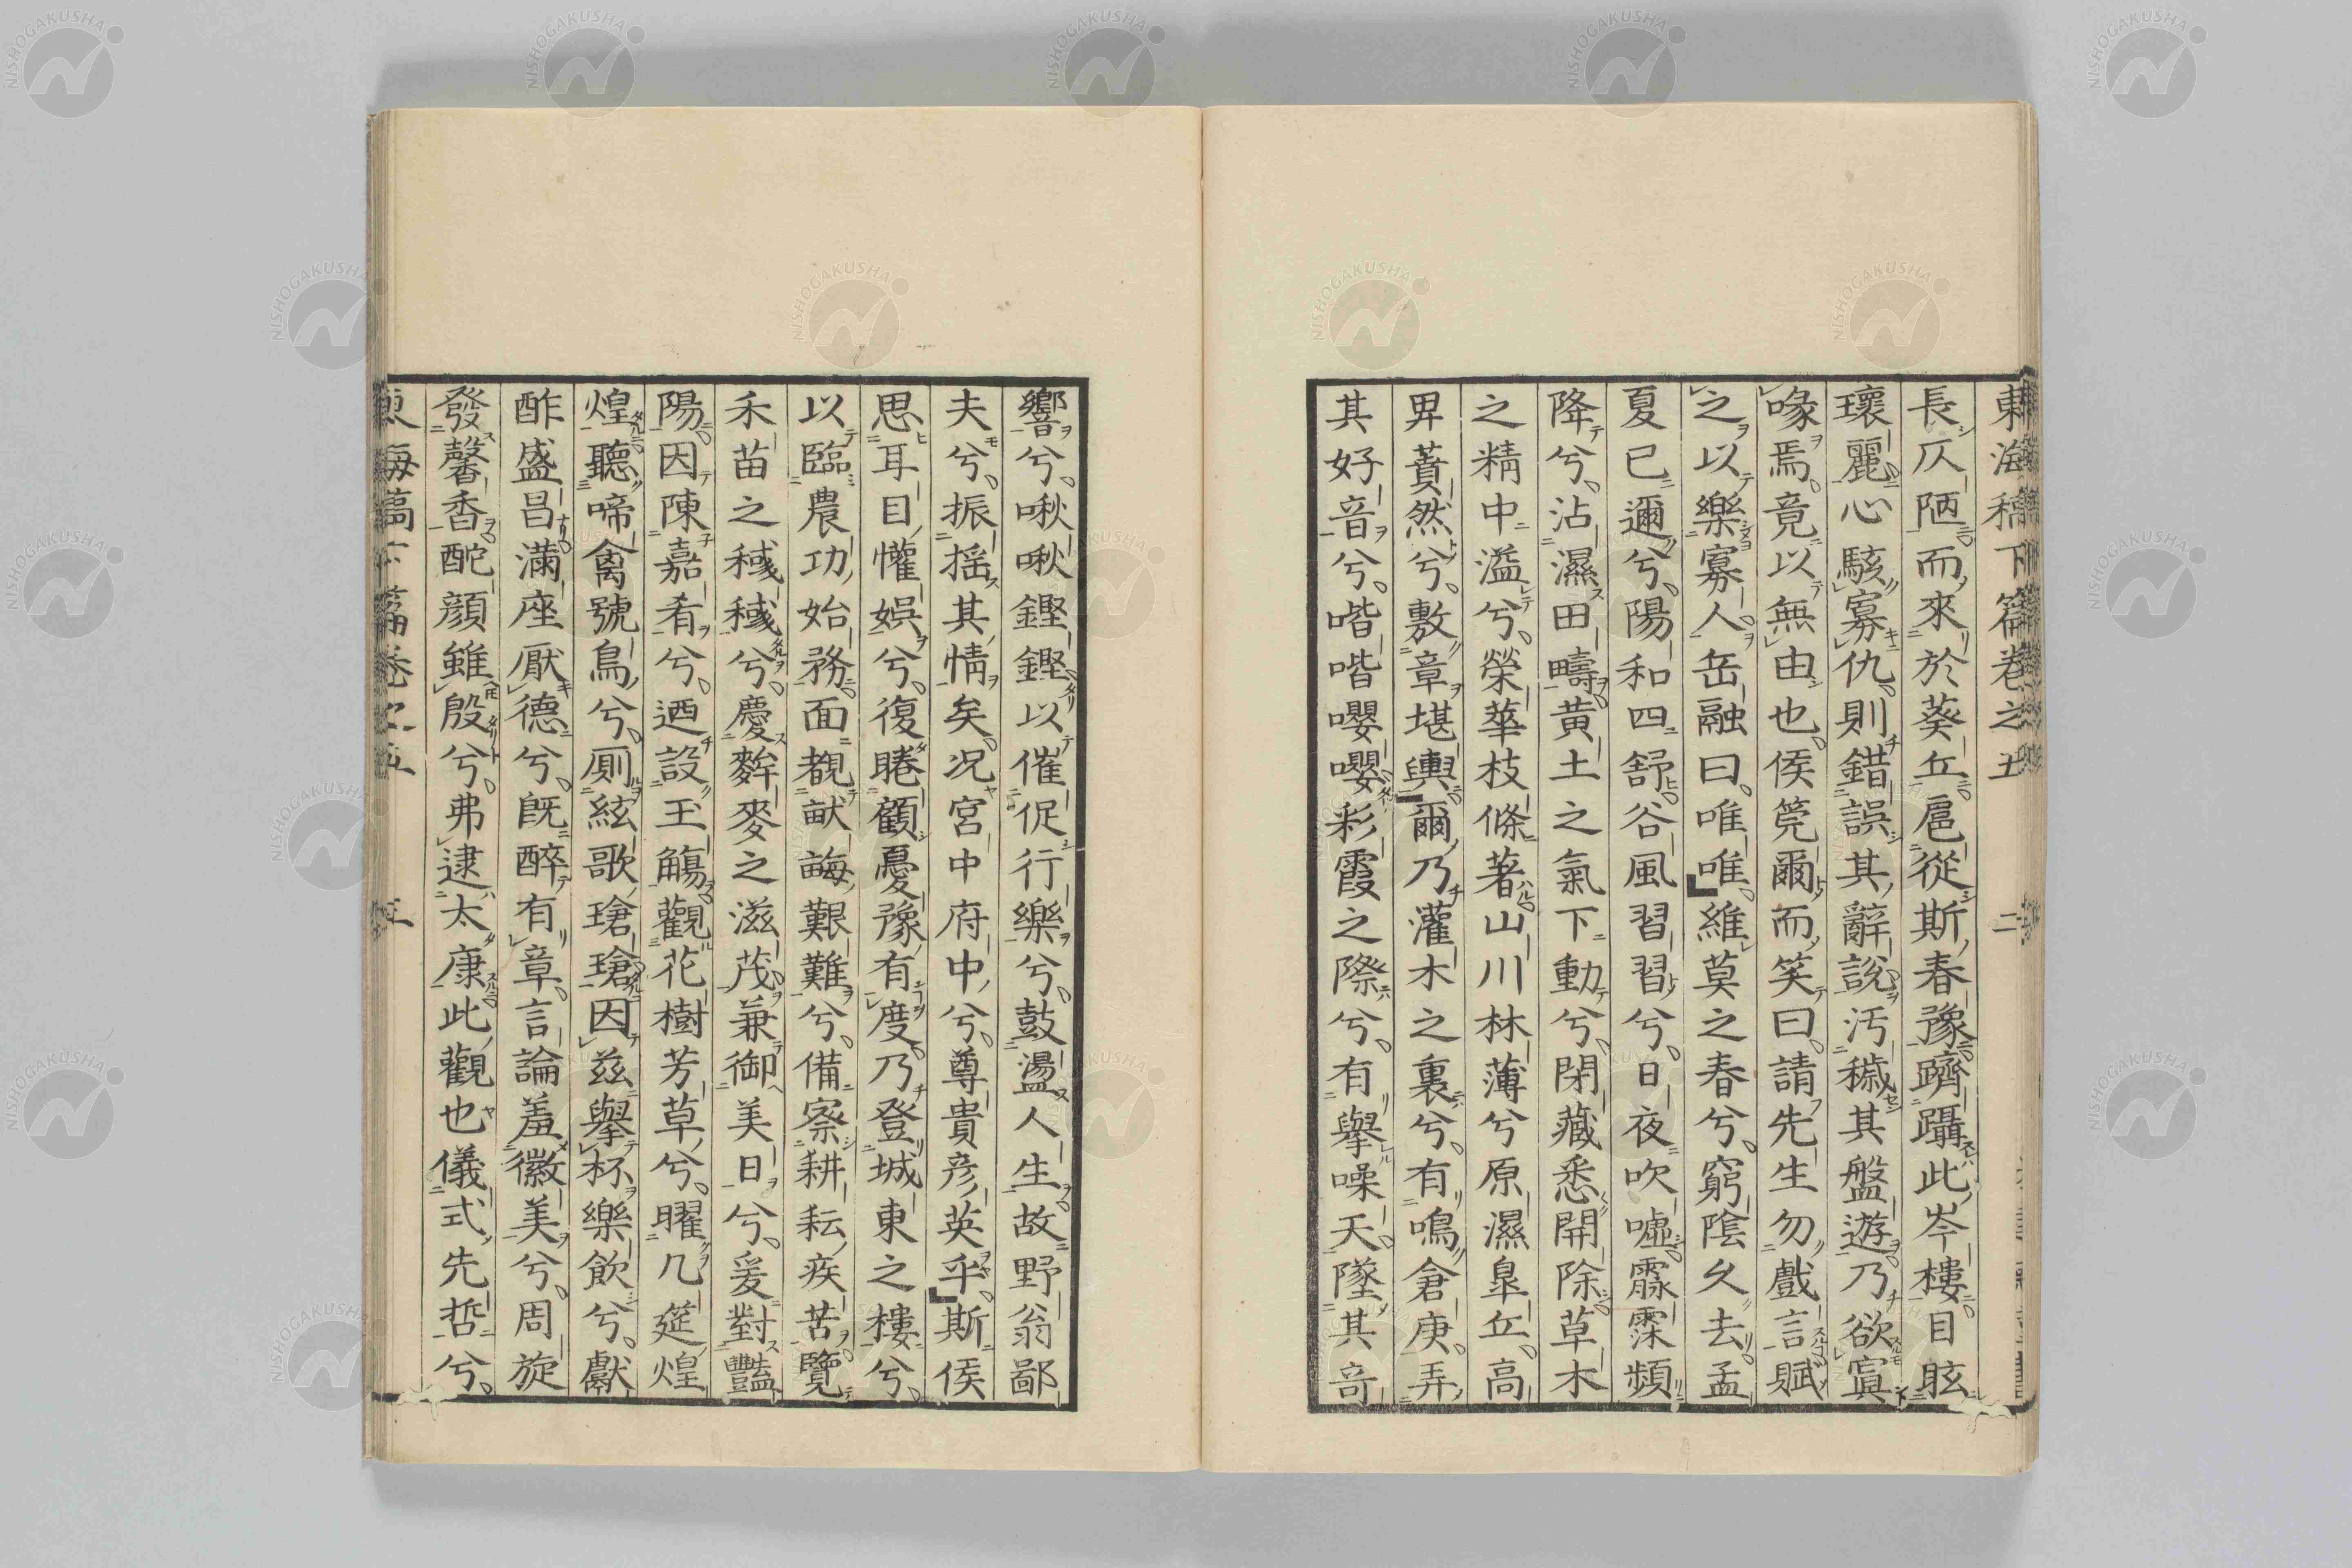 東海稿下篇卷之五 二
長仄陋而來於葵丘扈從斯春豫躋躡此岑樓目眩
瓌麗心駭寡仇則錯誤其辭說汚穢其盤遊乃欲寘
喙焉竟以無由也侯筦爾而笑曰請先生勿戲言賦
之以樂寡人岳融曰唯唯維莫之春兮窮陰久去孟
夏已邇兮陽和四舒谷風習習兮日夜吹噓霢霂頻
降兮沾濕田疇黃土之氣下動兮閉藏悉開除草木
之精中溢兮榮華枝條著山川林薄兮原濕皐丘高
畀蕡然兮敷章堪輿爾乃灌木之裏兮有鳴倉庚弄
其好音兮喈喈嚶嚶彩霞之際兮有舉噪天墜其奇
響兮啾啾鏗鏗以催促行樂兮鼓盪人生故野翁鄙
夫兮振搖其情矣况宮中府中兮尊貴彥英乎斯侯
思耳目懽娛兮復睠顧憂豫有度乃登城東之樓兮
以臨農功始務面覩畎畮艱難兮備察耕耘疾苦覽
禾苗之穟穟兮慶麰麥之滋茂兼御美日兮爰對豔
陽因陳嘉肴兮迺設玉觴觀花樹芳草兮曜几筵煌
煌聽啼禽號鳥兮厠絃歌瑲瑲因玆舉杯樂飲兮獻
酢盛昌滿座厭德兮既醉有章言論羞徽美兮周旋
發馨香酡顏雖殷兮弗逮太康此觀也儀式先哲兮
東海稿下篇卷之五 三
NISHOGAKUSHA